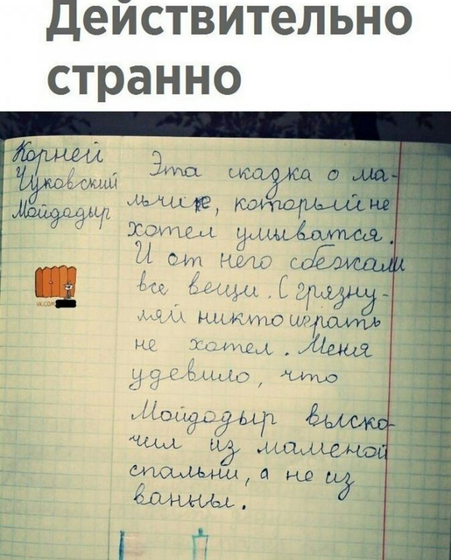 Действительно
странно
Корней
Чуковский
Мойдодыр
Эта сказка о ма-
льчике, который не
хотел умыватся.
И от него сбежали
все вещи. С грязну-
ляй никто играть
не хотел. Меня
удевило, что
Мойдодыр выско-
чил из маменой
спальни, а не из
ванны.
VK.COM